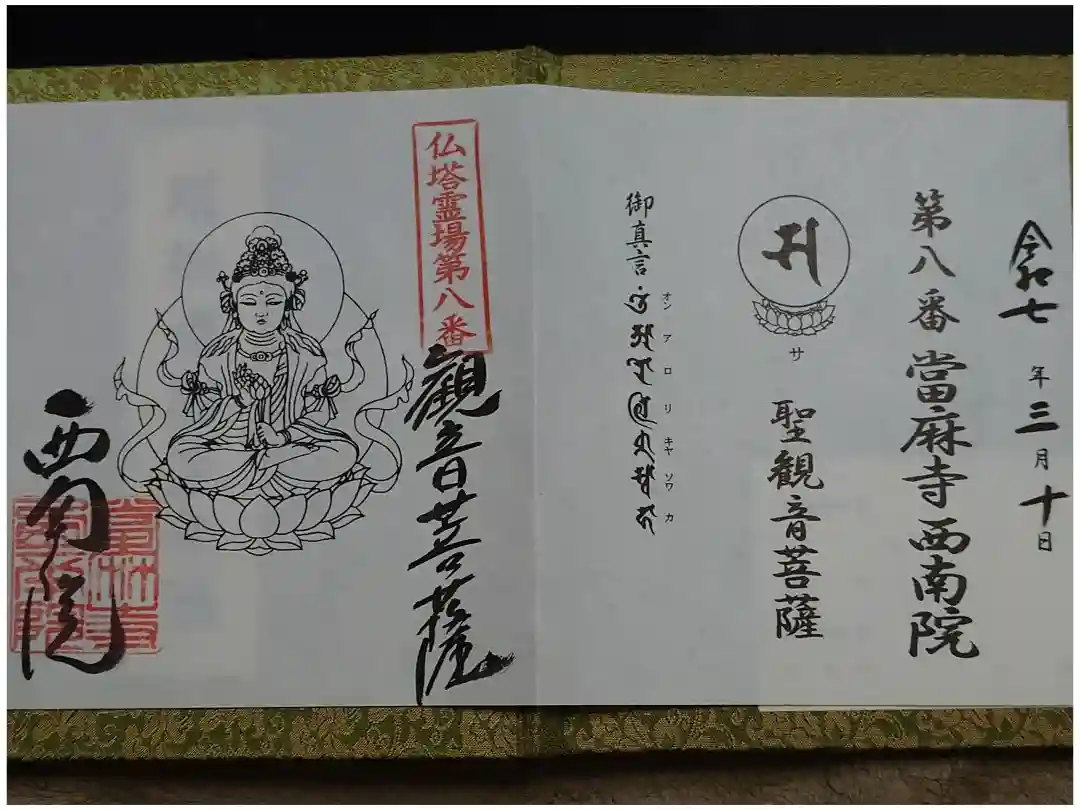 令和七年三月十日
第八番 當麻寺西南院
サ
聖観音菩薩
御真言
オン ア ロ リ キャ ソワ カ
仏塔霊場第八番
觀音菩薩
西南院